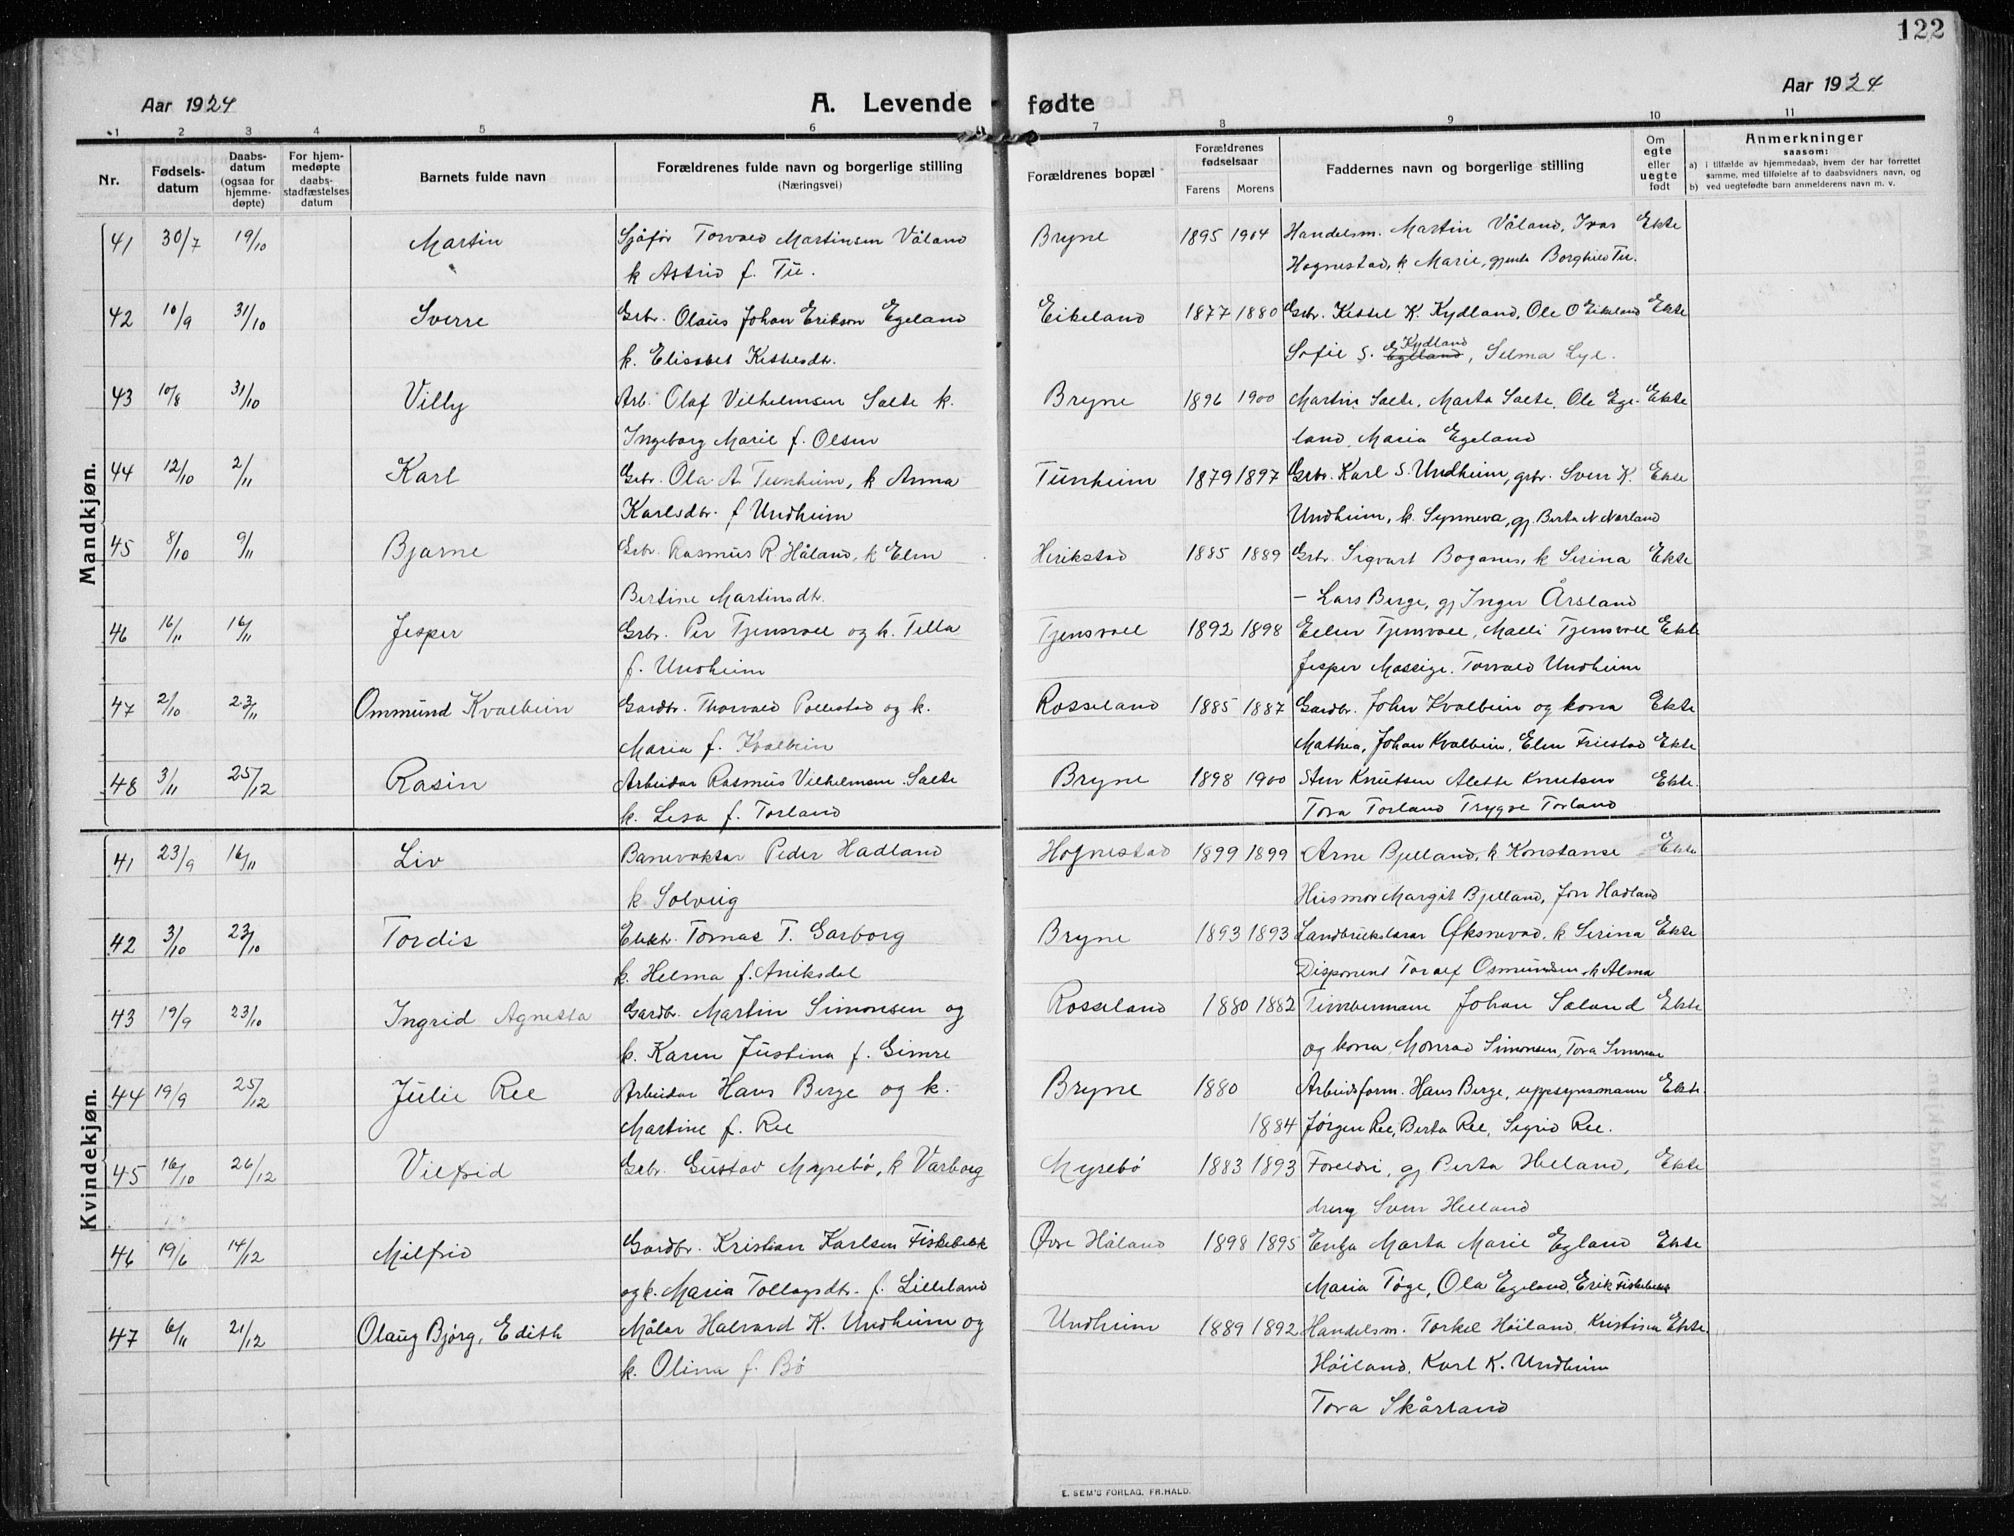 122
Aar 1924 A. Levende fødte Aar 1924
1 2 3 4 5 6 7 8 9 10 11
Nr. Fødsels-datum Daabs-datum (ogsaa for hjemme-døpte) For hjem-medøpte daabs-stadfæstelses datum Barnets fulde navn Forældrenes fulde navn og borgerlige stilling (Næringsvei) Forældrenes bopæl Forældrenes fødselsaar Farens Morens Faddernes navn og borgerlige stilling Om egte eller uegte født Anmerkninger saasom:
a) i tilfælde av hjemmedaab, hvem der har forrettet samme, med tilføielse af to daabsvidners navn, og
b) ved uegtefødte barn anmelderens navn m. v.
Mandkjøn.
41 30/7 19/10 Martin Sjåfør Torvald Martinsen Våland Bryne 1895 1904 Handelsm. Martin Våland, Ivar Ekte
k Astrid f. Tu. Hognestad, k Marie, gjenta Borghild Tu.
42 10/9 31/10 Sverre Grbr. Olaus Johan Erikson Egeland Eikeland 1877 1880 Grbr. Kittel K. Kydland, Ole O Eikeland Ekte
k. Elisabet Kittelsdtr. Sofie S. Egeland Kydland, Selma Lye.
43 10/8 31/10 Villy Arb. Olaf Vilhelmsen Salte k. Bryne 1896 1900 Martin Salte, Marta Salte, Ole Ege- Ekte
Ingeborg Marie f. Olsen land, Maria Egeland
44 12/10 2/11 Karl Grbr. Ola A. Tunheim, k Anna Tunheim 1879 1897 Grbr. Karl S. Undheim, grbr. Sven K. Ekte
Karlsdtr. f Undheim Undheim, k. Synneva, gj Berta N Nærland
45 8/10 9/11 Bjarne Grbr. Rasmus R Håland, k Elen Herikstad 1885 1889 Grbr. Sigvart Boganes, k Serina Ekte
Bertine Martinsdtr. – Lars Berge, gj Inger Årsland
46 16/11 16/11 Jesper Grbr. Per Tjensvoll og k. Tilla Tjensvoll 1892 1898 Eilen Tjensvoll, Malli Tjensvoll Ekte
f. Undheim Jesper Massige, Torvald Undheim
47 2/10 23/11 Ommund Kvalbein Gardbr. Thorvald Pollestad og k. Rosseland 1885 1887 Gardbr. John Kvalbein og kona Ekte
Maria f. Kvalbein Mathea, Johan Kvalbein, Elen Friestad Ekte
48 3/11 25/12 Rasin Arbeidar Rasmus Vilhelmsen Salte Bryne 1898 1900 Knutsen Alette Knutsen Ekte.
k. Lisa f. Torland Tora Torland Trygve Torland
Kvindekjøn.
41 23/9 16/11 Liv Banevaktar Peder Hadland Hognestad 1899 1899 Arne Bjelland, k Konstanse Ekte
k Solveig Husmor Margit Bjelland, Jon Hadland
42 3/10 23/10 Tordis Elektr. Tomas T. Garborg Bryne 1893 1893 Landbrukslærar Øksnevad, k Serina Ekte
k. Helma f. Aniksdal Disponent Toralf Osmundsen, k Alma
43 19/9 23/10 Ingrid Agnetta Gardbr. Martin Simonsen og Rosseland 1880 1882 Timbermann Johan Sæland Ekte
k. Karen Justina f. Gimre og kona, Monrad Simonsen, Tora Simonsen
44 19/9 25/12 Julie Ree Arbeidar Hans Berge og k. Bryne 1880 Arbeidsform. Hans Berge, uppsynsmann Ekte.
Martine f. Ree 1884 Jørgen Ree, Berta Ree, Sigrid Ree.
45 16/10 26/12 Vilfrid Grbr. Gustav Myrebø, k Varborg Myrebø 1883 1893 Foreldri, gj Berta Helland, Ekte
dreng Sven Helland
46 19/6 14/12 Milfrid Gardbr. Kristian Karlsen Fiskebekk Øvre Håland 1898 1895 Enkja Marta Marie Egland Ekte
og k. Maria Tollagsdtr. f. Lilleland Maria Tøge, Ola Egeland, Erik Fiskebekk
47 6/11 21/12 Olaug Bjørg, Edith Målar Halvard K. Undheim og Undheim 1889 1892 Handelsm. Torkel Høiland, Kristina Ekte.
k. Olina f. Bø Høiland, Karl K. Undheim
Tora Skårland
E. SEM'S FORLAG, FR.HALD.